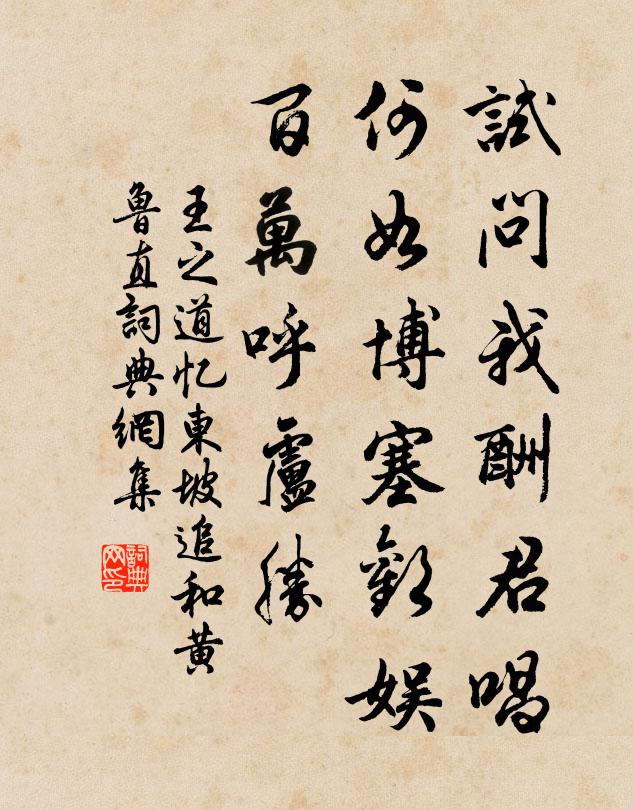 試問我酬君唱
何如博塞歡娱
百萬呼盧勝
王之道忆東坡追和黄
魯直詞典網集
詞典网印